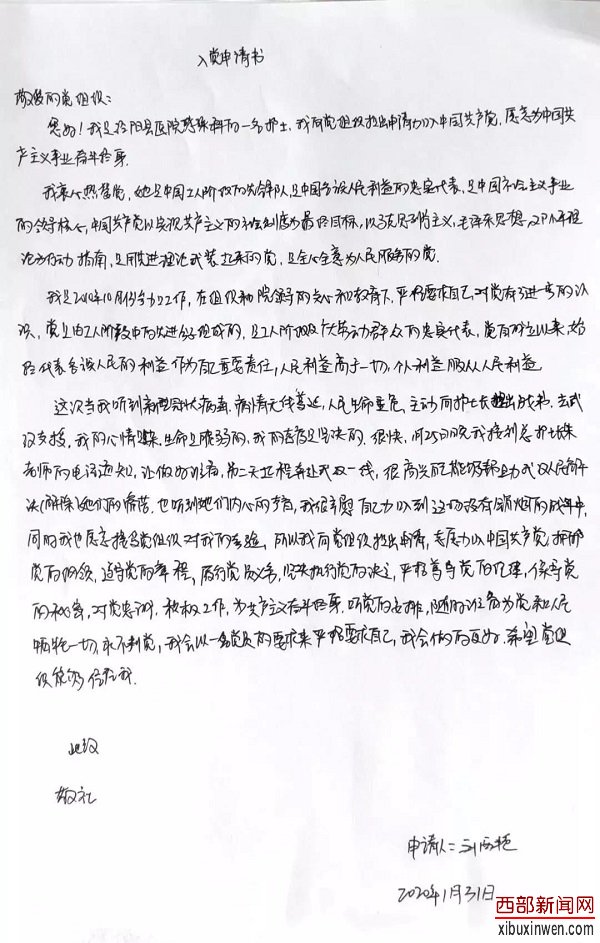 入党申请书
敬爱的党组织:
您好!我是 阳县医院 科的一名护士,我向党组织提出申请加入中国共产党,愿意为中国共
产主义事业奋斗终身.
我衷心热爱党,她是中国工人阶级的先锋队,是中国各族人民利益的忠实代表,是中国社会主义事业
的领导核心,中国共产党以实现共产主义的社会制度为最终目标,以马克思列宁主义,毛泽东思想,邓小平理
论为行动指南,是用先进理论武装起来的党,是全心全意为人民服务的党.
我是 年10月份参加工作,在组织和院领导的关心和教育下,严格要求自己,对党有了进一步的认
识,党是由工人阶级中的先进分子组成的,是工人阶级及广大劳动群众的忠实代表,党自成立以来,始
终代表各族人民的利益作为自己重要责任,人民利益高于一切,个人利益服从人民利益.
这次当我听到新型冠状病毒,病情无线蔓延,人民生命垂危,主动向护士长 出战书,去武
汉支援,我的心情 ,生命是脆弱的,我的态度是坚决的.很快,1月25日晚我接到总护士长朱
老师的电话通知,让做好准备,第二天启程奔赴武汉一线,很高兴自己能够帮助武汉人民解
决(解除)她们的 ,也听到她们内心的声音,我很 自己加入到这场没有硝烟的战争中,
同时我也愿意接受党组织对我的考验,所以我向党组织提出申请,志愿加入中国共产党,拥护
党的纲领,遵守党的章程,履行党员义务,坚决执行党的决定,严格遵守党的纪律,保守党
的秘密,对党忠诚,积极工作,为共产主义奋斗终身,听党的安排,随时准备为党和人民
牺牲一切,永不叛党,我会以一名党员的要求来严格要求自己,我会做的更好.希望党组
织能够 我.
此致
敬礼
申请人:刘
2020年1月31日
西部新闻网
xibuxinwen.com